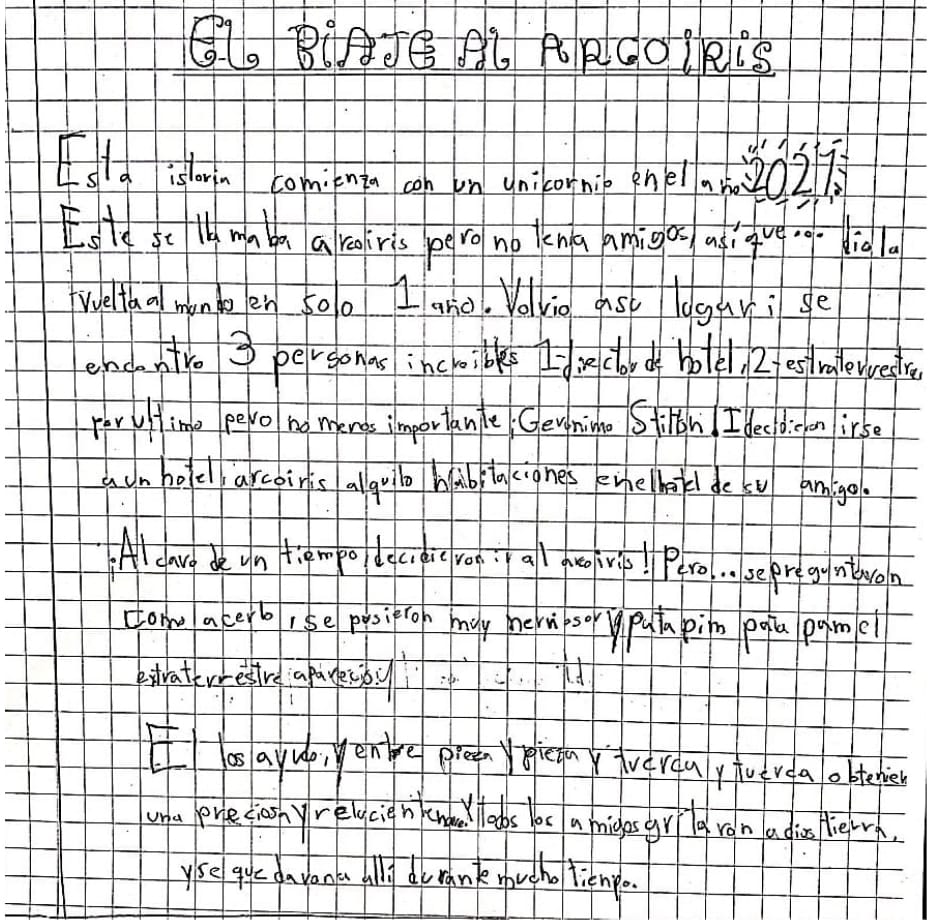 EL BIAJE AL ARCOIRIS
Esta istoria comienza con un unicornio en el año 2021
Este se llamaba arcoiris pero no tenia amigos, así que... dio la
vuelta al mundo en solo 1 año. Volvio asu lugar i se
encontro 3 personas increibles 1-director de hotel, 2-estraterrestre,
por ultimo pero no menos importante, Geronimo Stilton! I decidieron irse
a un hotel, arcoiris alquilo habitaciones en el hotel de su amigo.
¡Al cavo de un tiempo, decidieron ir al arcoiris! Pero... se preguntaron
como acerlo, se posieron muy nerviosos y pata pim pata pam el
estraterrestre aparecio y
El los ayudo, y entre pieza y pieza y tuerca y tuerca obtenien
una preciosa y reluciente nave. Y todos los amigos gritaron adios tierra,
y se quedavon alli durante mucho tienpo.